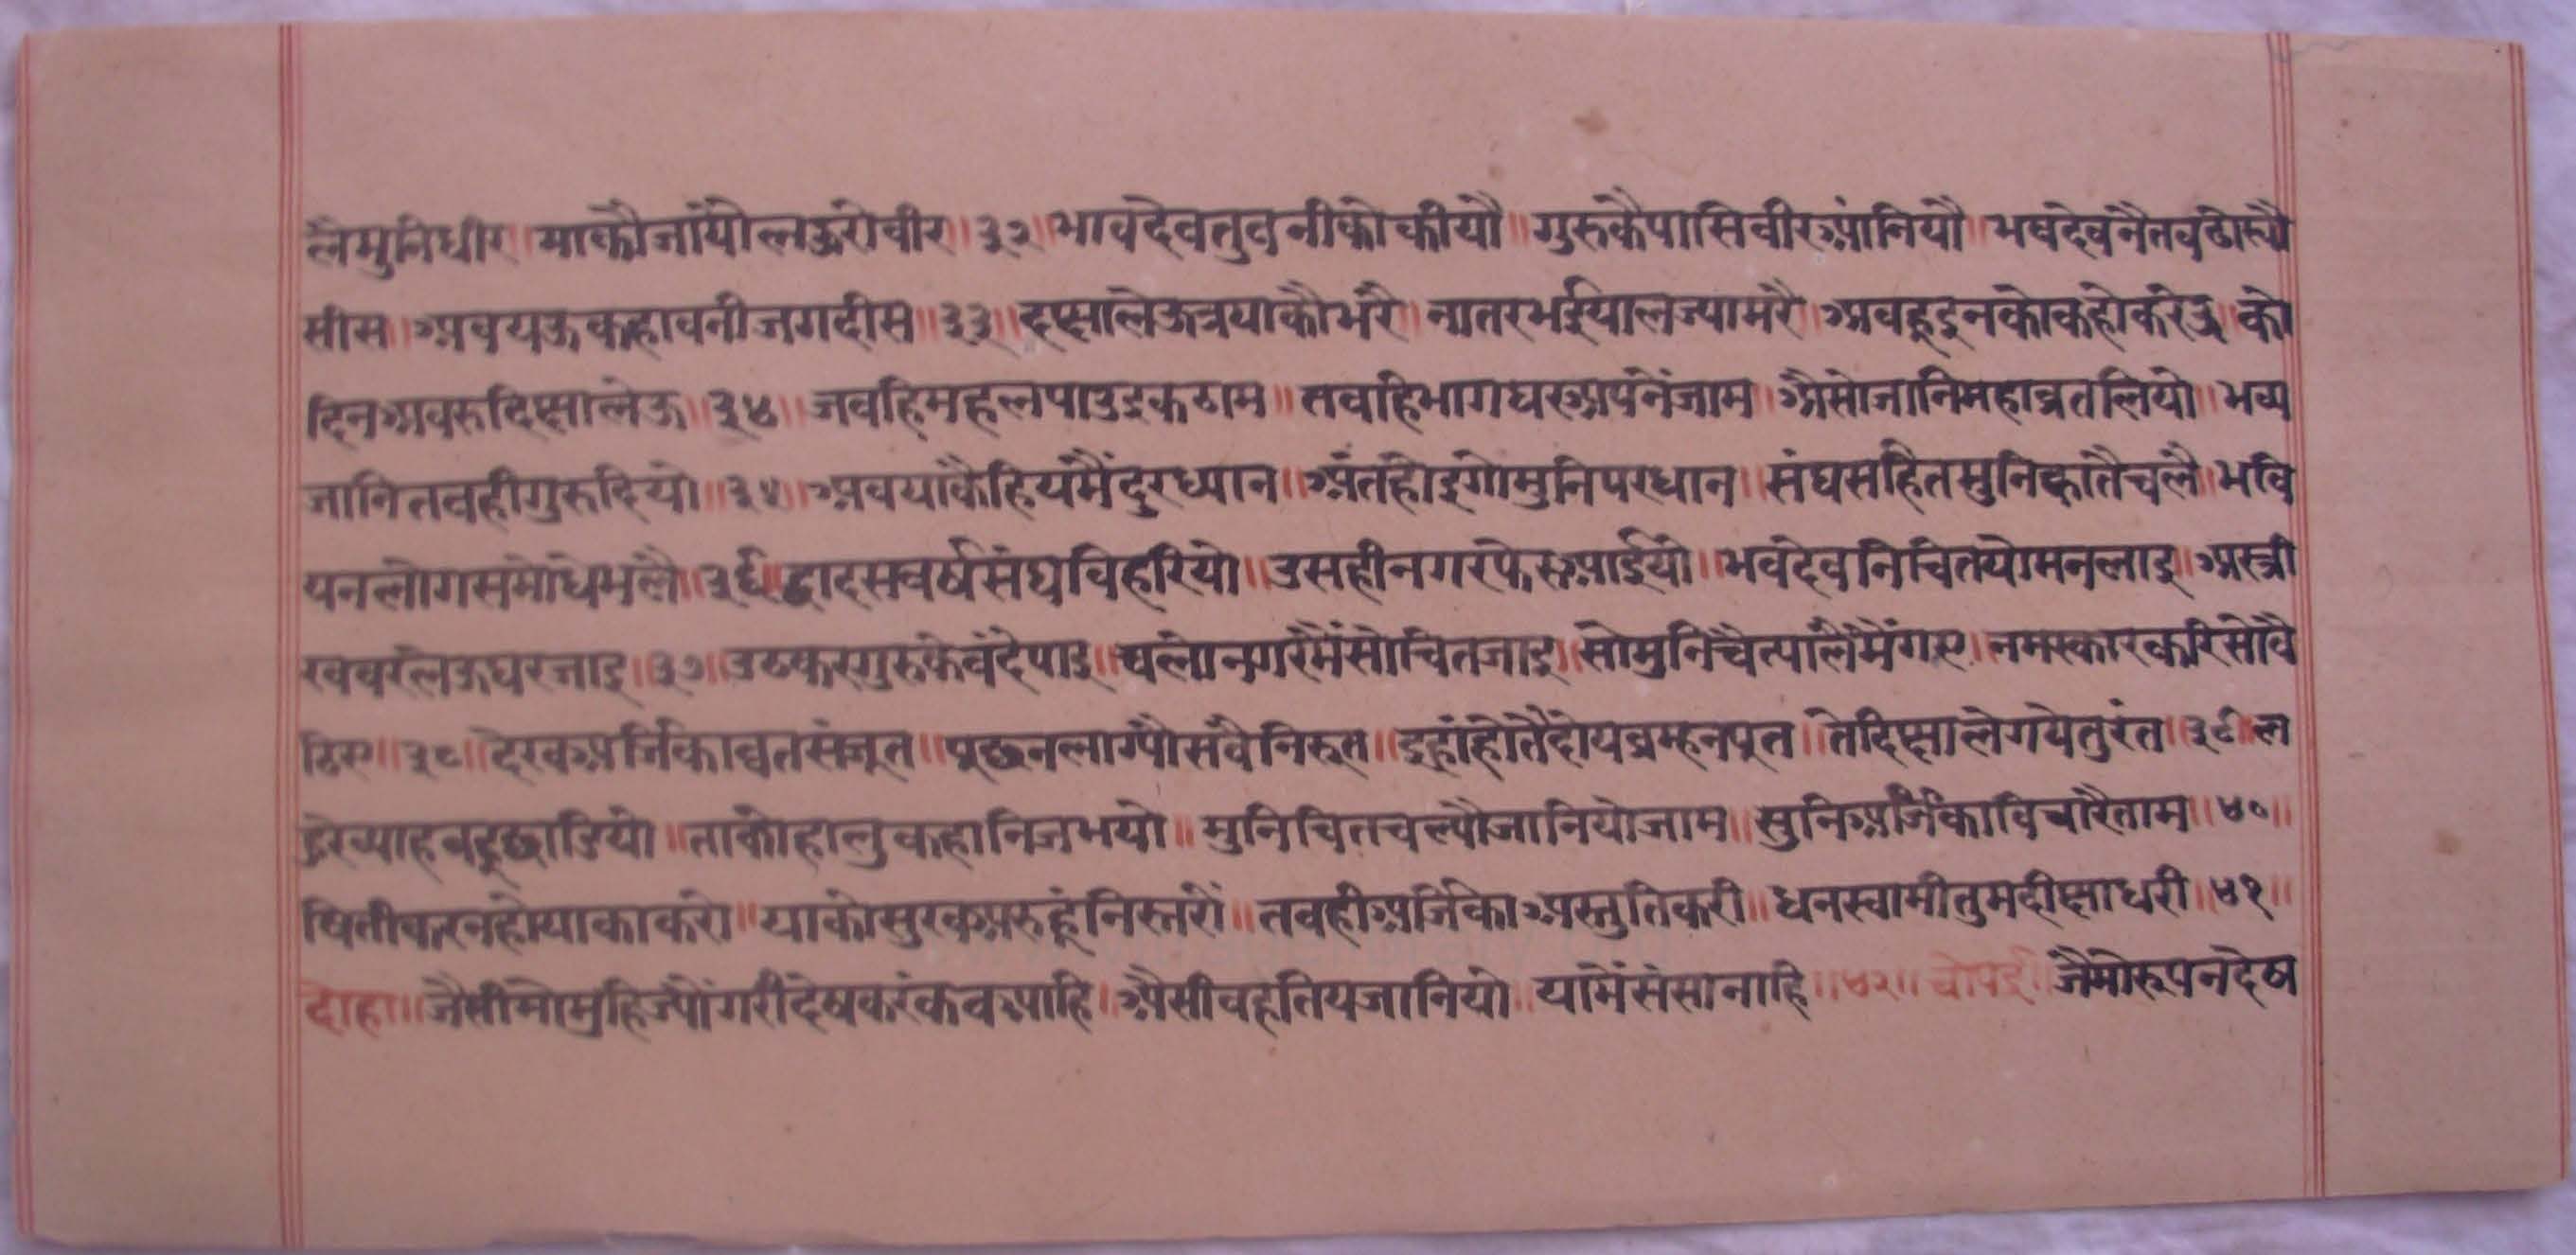 लैमुनिधीर॥याकौजांयौलऊरोवीर॥३२॥भावदेवतुवनीकोकीयौ॥गुरुकैपासिवीरआंनियौ॥भवदेवनैतवठोस्यौ
सीस॥अवयऊकहावनीजगदीस॥३३॥दष्यालेऊत्रयाकौभरै॥नातरभईयालज्यामरै॥अवहूइनकोकहोकरेऊ॥को
दिनअवरुदिष्यालेऊ॥३४॥जवहिमहलपाउइकठाम॥तवहिभागघरुअपनेंजाम॥अैसोजानिमहाव्रतलियो॥भव्य
जानितवहीगुरुदियो॥३५॥अवयाकैहियमैंदुरध्यान॥अंतहोइगोमुनिपरधान॥संघसहितमुनिह्वातैचलै॥भवि
यनलोगसमोधेभलै॥३६॥द्वादसवर्षसंघविहरियो॥उसहीनगरफेरुआईयो॥भवदेवनिचितयोमनलाइ॥अस्त्री
खवरलेऊघरजाइ॥३७॥उठकरगुरुकेवंदेपाइ॥चलोनगरमैंसोचितजाइ॥सोमुनिचैत्यालैमैंगए॥नमस्कारकरिसोवै
ठिए॥३८॥देखअर्जिकाव्रतसंजूत॥पूछनलाग्यौसवैनिरूत॥इहांहोतैदोयव्रम्हनपूत॥तेदिष्यालेगयेतुरंत॥३९॥ल
हुरेव्याहवहूछाडियो॥ताकोहालुकहानिजभयो॥मुनिचितचल्यौजानियोजाम॥सुनिअर्जिकाविचारैताम॥४०॥
थितीकरनहोयाकाकरो॥याकोसुरकअरुहूंनिस्तरों॥तवहीअर्जिकाअस्तुतिकरी॥धनस्वामीतुमदीष्याधरी॥४१॥
दोहा॥जैसीमोमुहिज्यौंगरीदेषकरंकवआहि॥अैसीवहतियजानियो॥यामैंसंसानाहि॥४२॥चोपई॥जैमोरूपनदेष